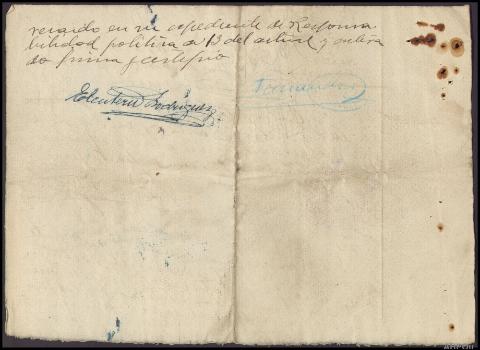 recaído en su expediente de Responsa
bilidad politica a 13 del actual y entera
do firma y certifico
Eleuterio Rodriguez
Fernandez